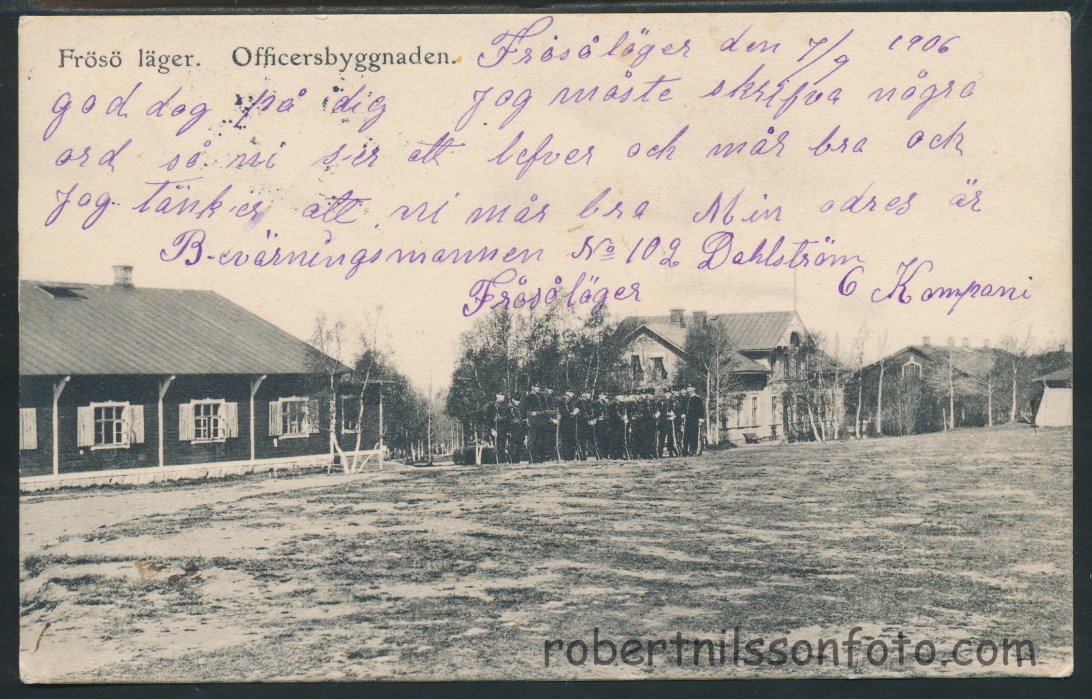 Frösö läger. Officersbyggnaden.
Frösöläger den 7/9 1906
god dag på dig Jag måste skrifva några
ord så ni ser att lefver och mår bra och
Jag tänker att ni mår bra Min adres är
Bevärningsmannen No 102 Dahlström
Frösöläger 6 Kompani
robertnilssonfoto.com